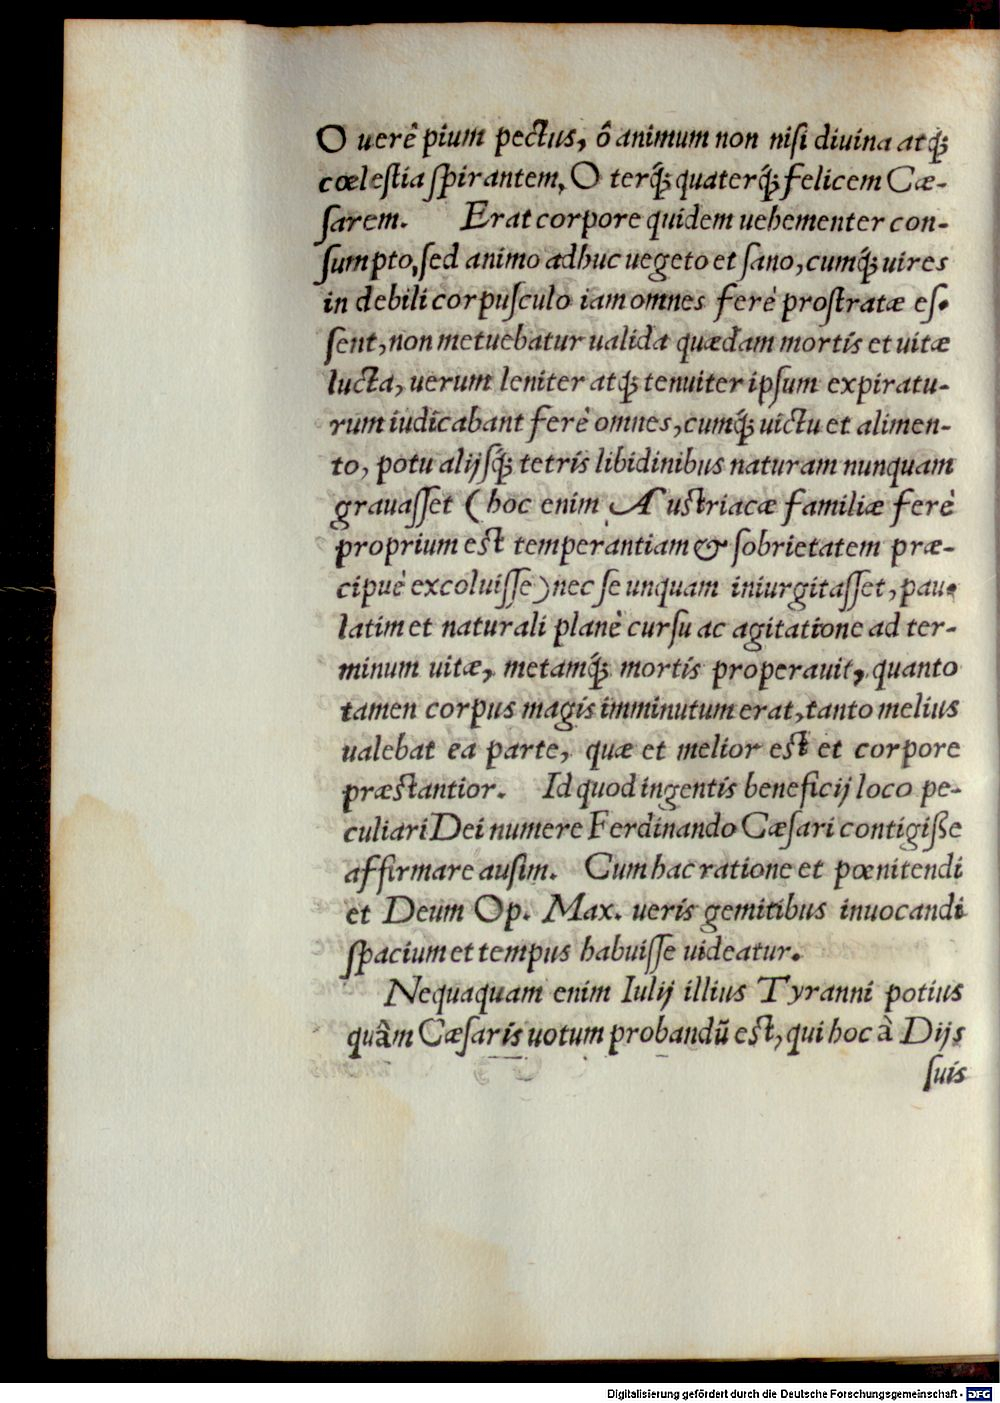 O uerê pium pectus, ô animum non nisi diuina atq́;
cœlestia spirantem, O terq́; quaterq́; felicem Cæ-
sarem. Erat corpore quidem uehementer con-
sumpto, sed animo adhuc uegeto et sano, cumq́; uires
in debili corpusculo iam omnes ferè prostratæ es-
sent, non metuebatur ualida quædam mortis et uitæ
lucta, uerum leniter atq́; tenuiter ipsum expiratu-
rum iudicabant ferè omnes, cumq́; uictu et alimen-
to, potu alijsq́; tetris libidinibus naturam nunquam
grauasset (hoc enim Austriacæ familiæ ferè
proprium est temperantiam & sobrietatem præ-
cipuè excoluisse) nec se unquam iniurgitasset, pau-
latim et naturali planè cursu ac agitatione ad ter-
minum uitæ, metamq́; mortis properauit, quanto
tamen corpus magis imminutum erat, tanto melius
ualebat ea parte, quæ et melior est et corpore
præstantior. Id quod ingentis beneficij loco pe-
culiari Dei numere Ferdinando Cæsari contigiße
affirmare ausim. Cum hac ratione et pœnitendi
et Deum Op. Max. ueris gemitibus inuocandi
spacium et tempus habuisse uideatur.
Nequaquam enim Iulij illius Tyranni potius
quâm Cæsaris uotum probandũ est, qui hoc à Dijs
suis
Digitalisierung gefördert durch die Deutsche Forschungsgemeinschaft - DFG